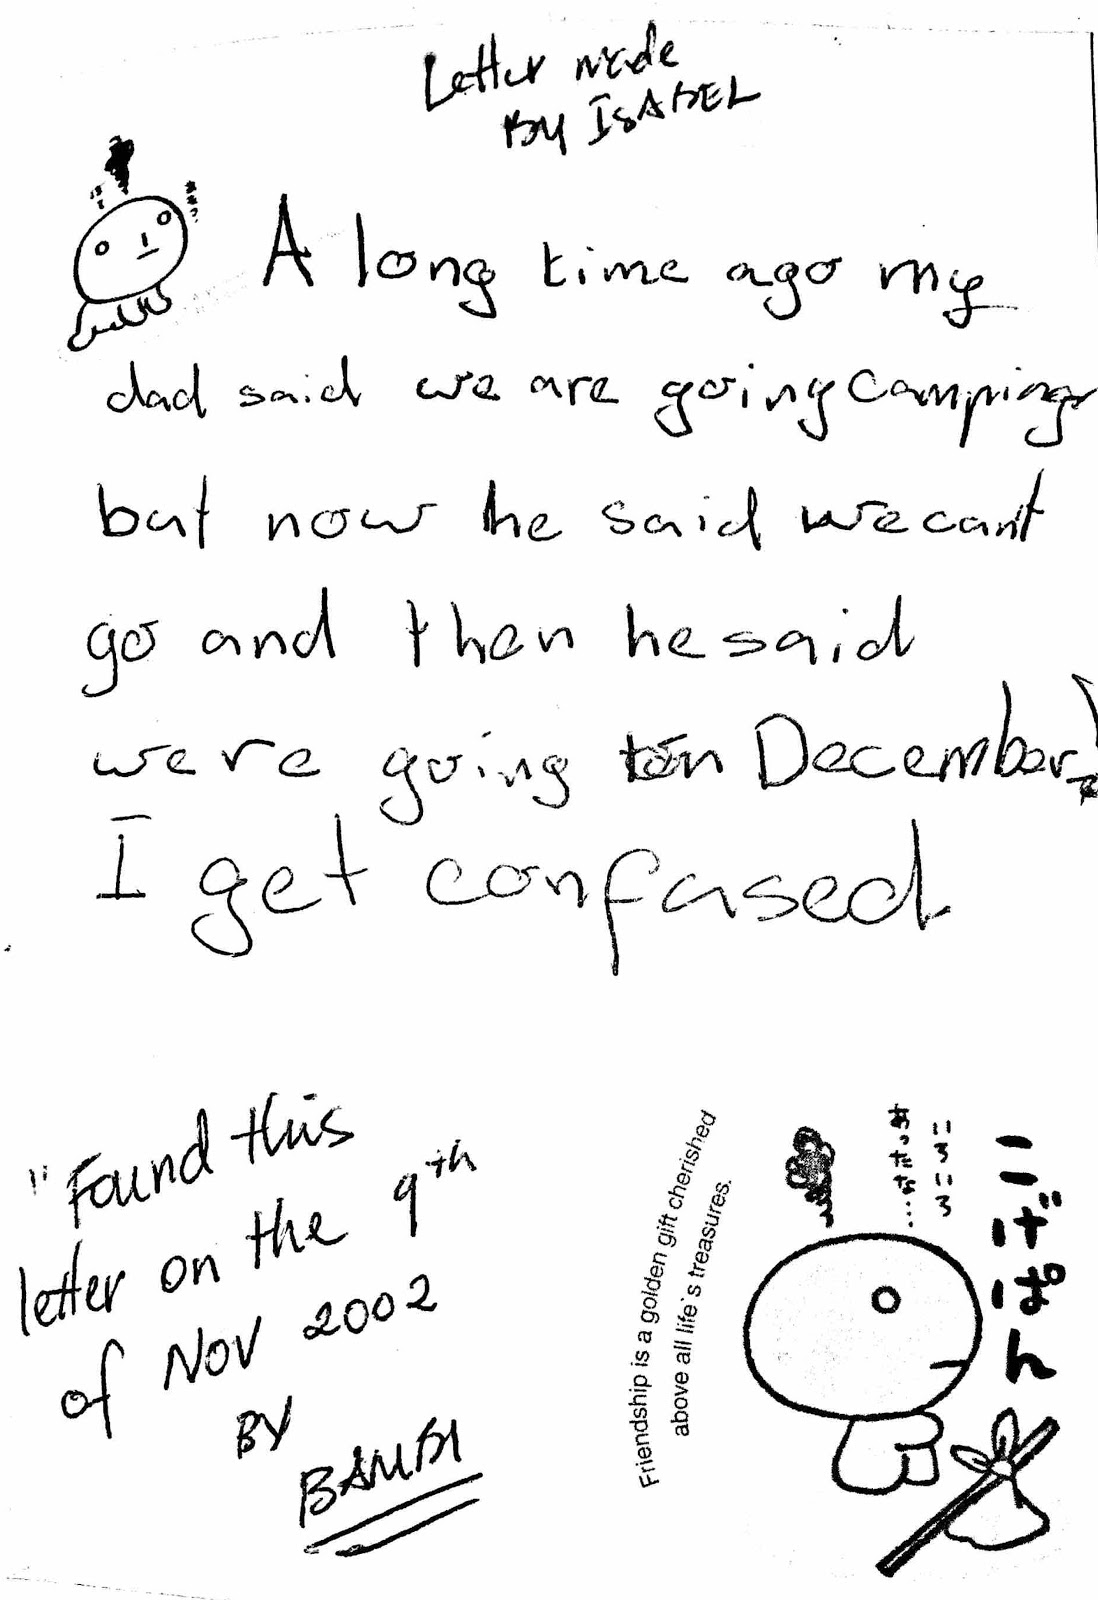 Letter made
By ISABEL
A long time ago my
dad said we are going camping
but now he said we cant
go and then he said
were going on December!
I get confused
"Found this
letter on the 9th
of Nov 2002
BY
BAMBI
Friendship is a golden gift cherished
above all life's treasures.
こげぱん
いろいろ
あったな…